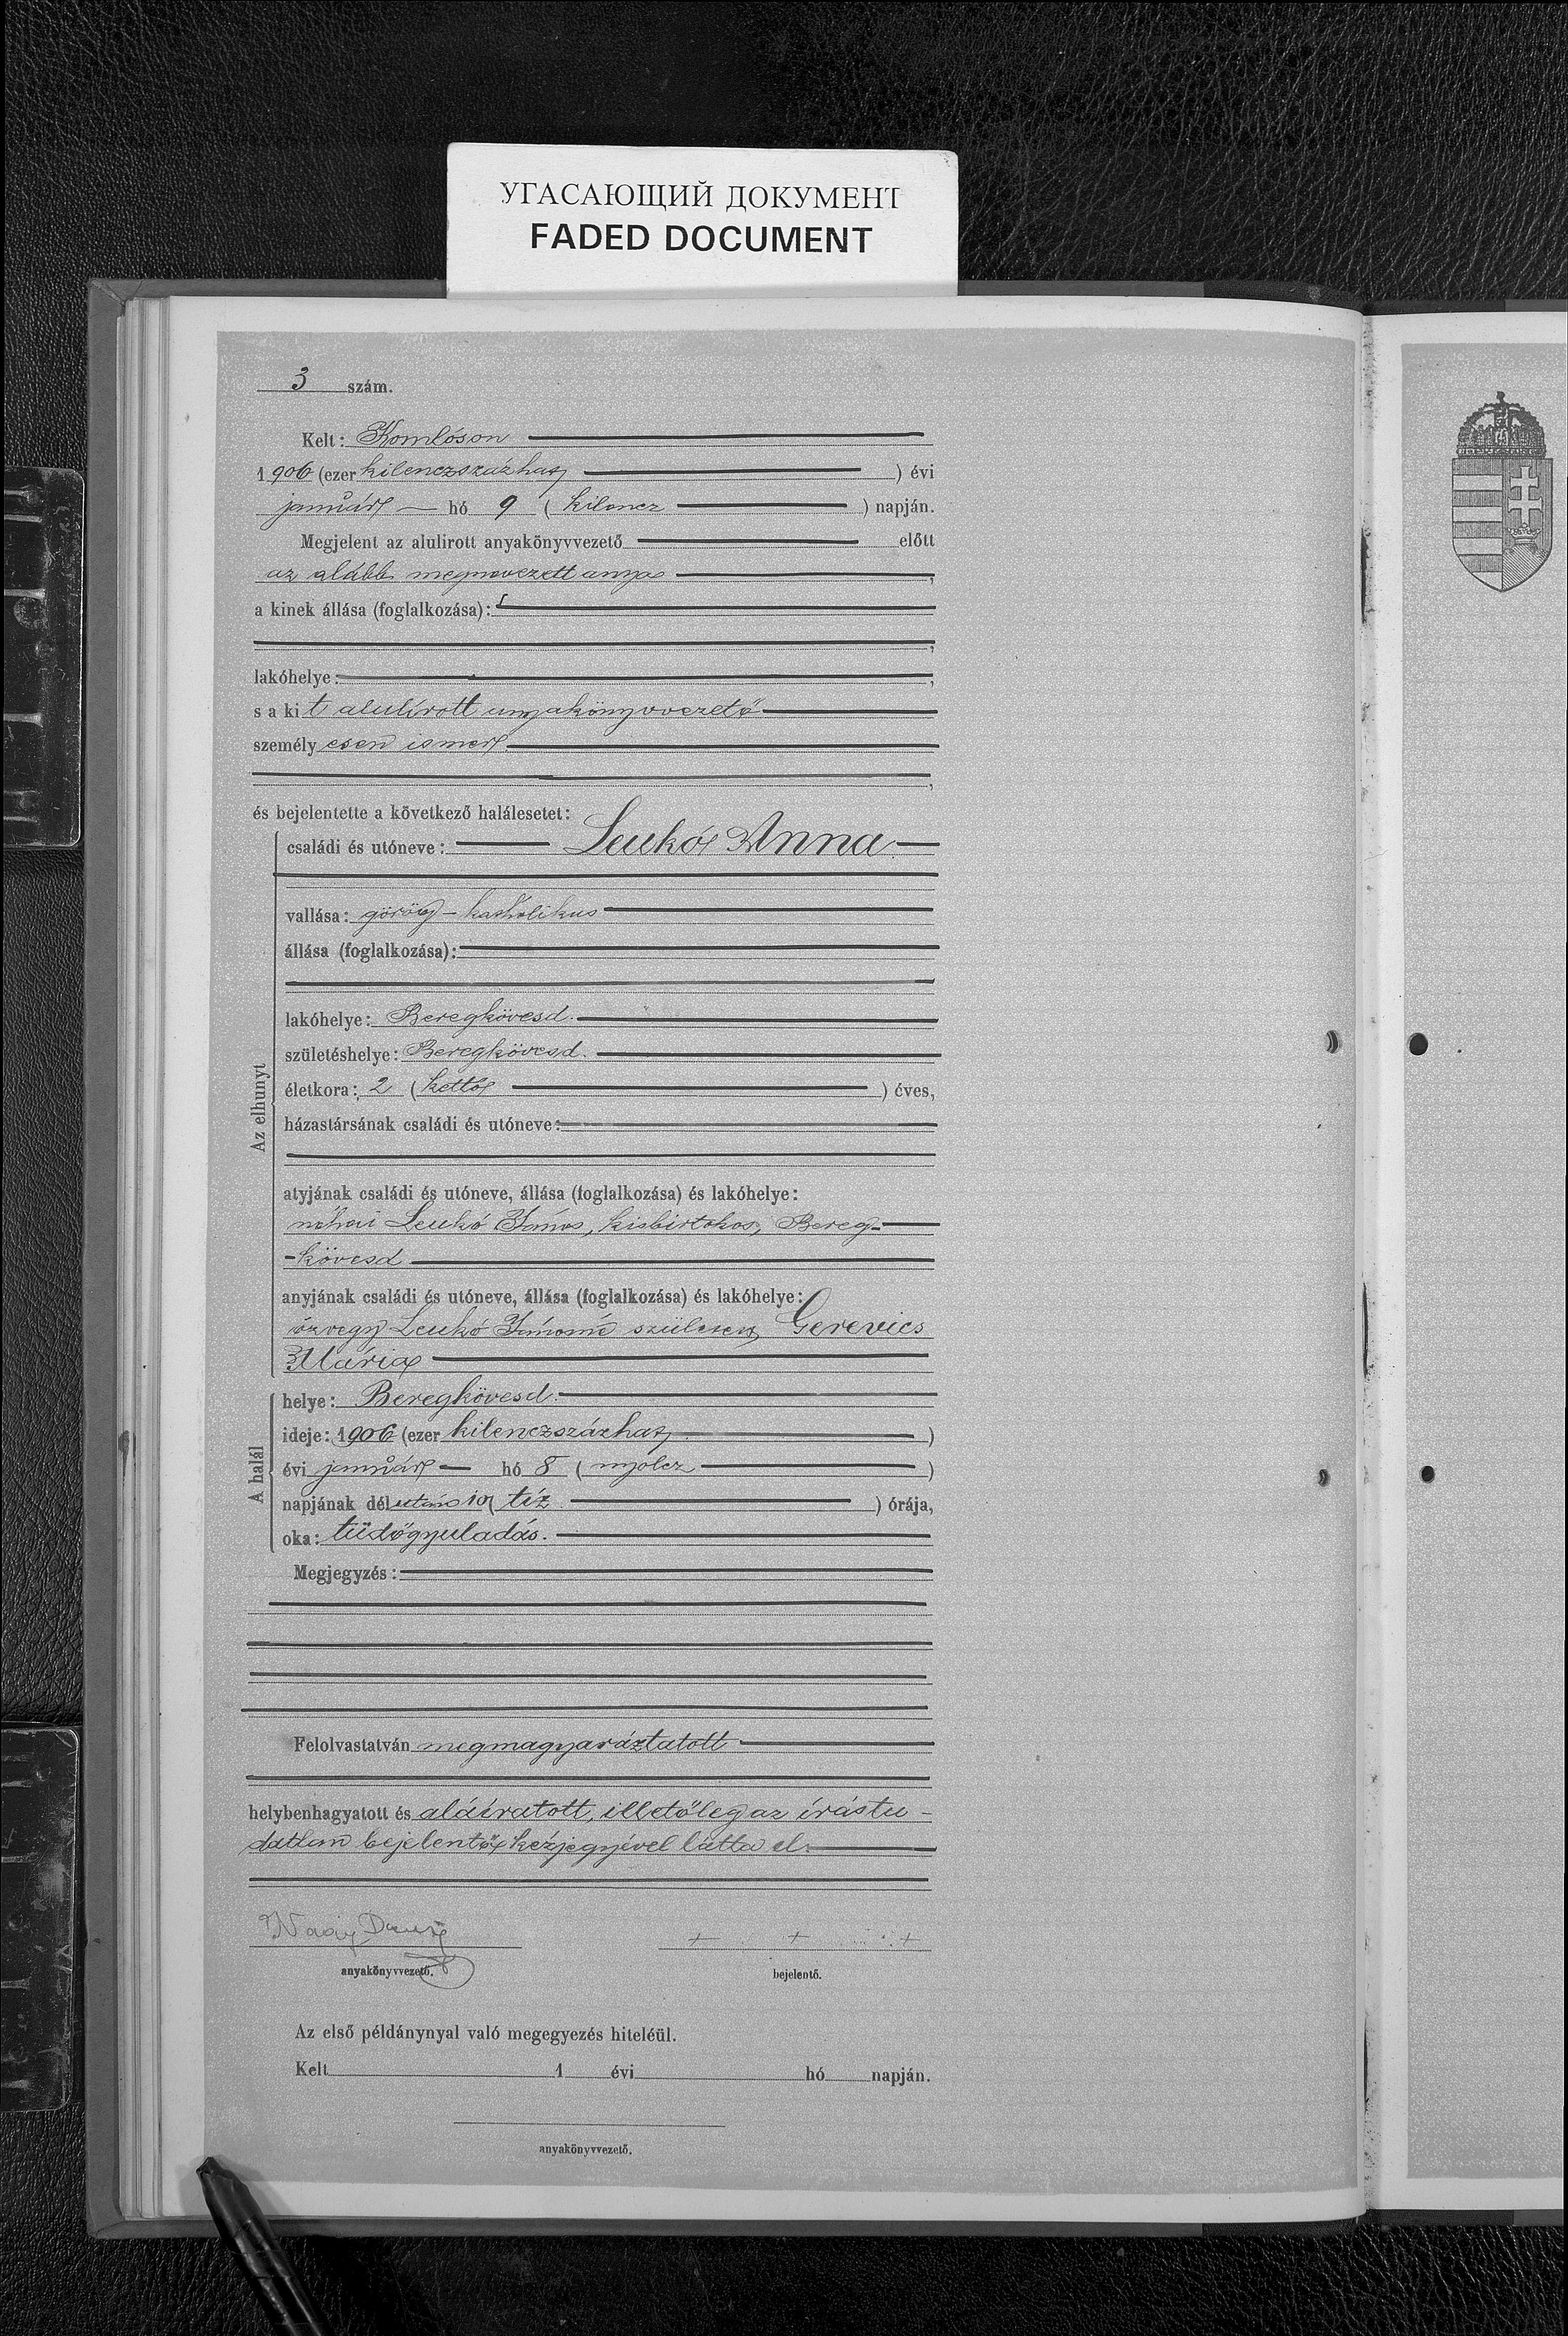 УГАСАЮЩИЙ ДОКУМЕНТ
FADED DOCUMENT
3 szám.
Kelt: Komlóson
1906 (ezer kilenczszázhat) évi
január hó 9 (kilencz) napján.
Megjelent az alulirott anyakönyvvezető előtt
az alább megnevezett anya,
a kinek állása (foglalkozása):
lakóhelye:
s a kit alulírott anyakönyvvezető
személyesen ismer
és bejelentette a következő halálesetet:
családi és utóneve: Leukó Anna
vallása: görög-katholikus
állása (foglalkozása):
lakóhelye: Beregkövesd.
születéshelye: Beregkövesd.
Az elhunyt
életkora: 2 (kettő) éves,
házastársának családi és utóneve:
atyjának családi és utóneve, állása (foglalkozása) és lakóhelye:
néhai Leukó János, kisbirtokos, Bereg-
-kövesd
anyjának családi és utóneve, állása (foglalkozása) és lakóhelye:
özvegy Leukó Jánosné született Gerevics
Mária
helye: Beregkövesd.
ideje: 1906 (ezer kilenczszázhat)
A halál
évi január hó 8 (nyolcz)
napjának délután 10 (tíz) órája,
oka: tüdőgyuladás.
Megjegyzés:
Felolvastatván megmagyaráztatott
helybenhagyatott és aláíratott, illetőleg az írástu-
datlan bejelentő kézjegyével látta el.
Nagy + + +
anyakönyvvezető. bejelentő.
Az első példánynyal való megegyezés hiteléül.
Kelt 1 évi hó napján.
anyakönyvvezető.